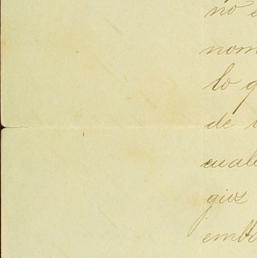 no
nom
lo q
de
cual
gios
emb